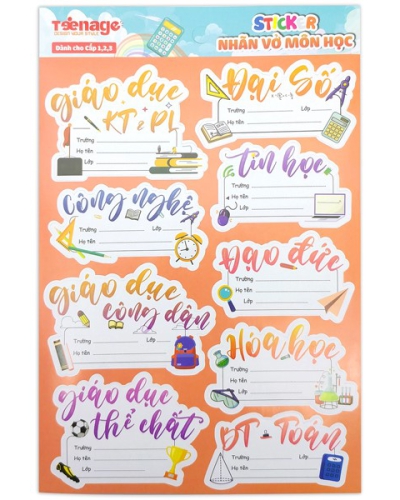 Teenage
Dành cho Cấp 1,2,3
STICKER
NHÃN VỞ MÔN HỌC
giáo dục
KT & PL
Trường
Họ tên
Lớp
Đại Số
Trường
Họ tên
Lớp
Công nghệ
Trường
Họ tên
Lớp
Tin học
Trường
Họ tên
Lớp
giáo dục
công dân
Trường
Họ tên
Lớp
Đạo đức
Trường
Họ tên
Lớp
giáo dục
thể chất
Trường
Họ tên
Lớp
Hóa học
Trường
Họ tên
Lớp
BT Toán
Trường
Họ tên
Lớp